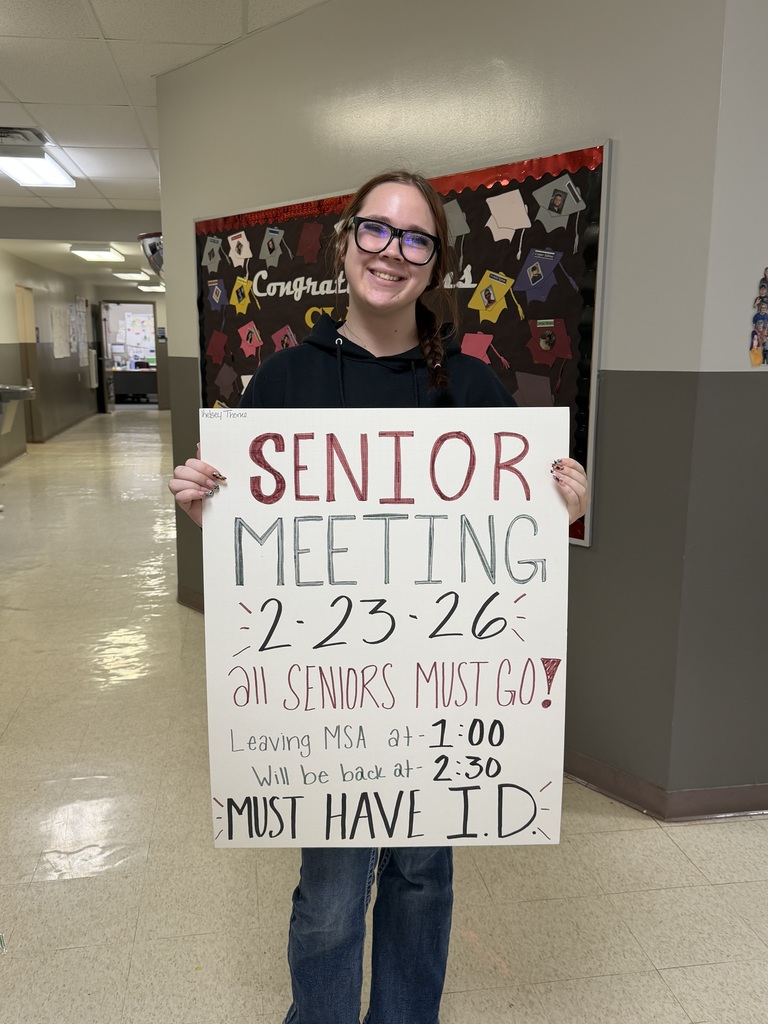 Congrat
s
SENIOR
MEETING
2-23-26
all SENIORS MUST GO!
Leaving MSA at - 1:00
Will be back at - 2:30
MUST HAVE I.D.